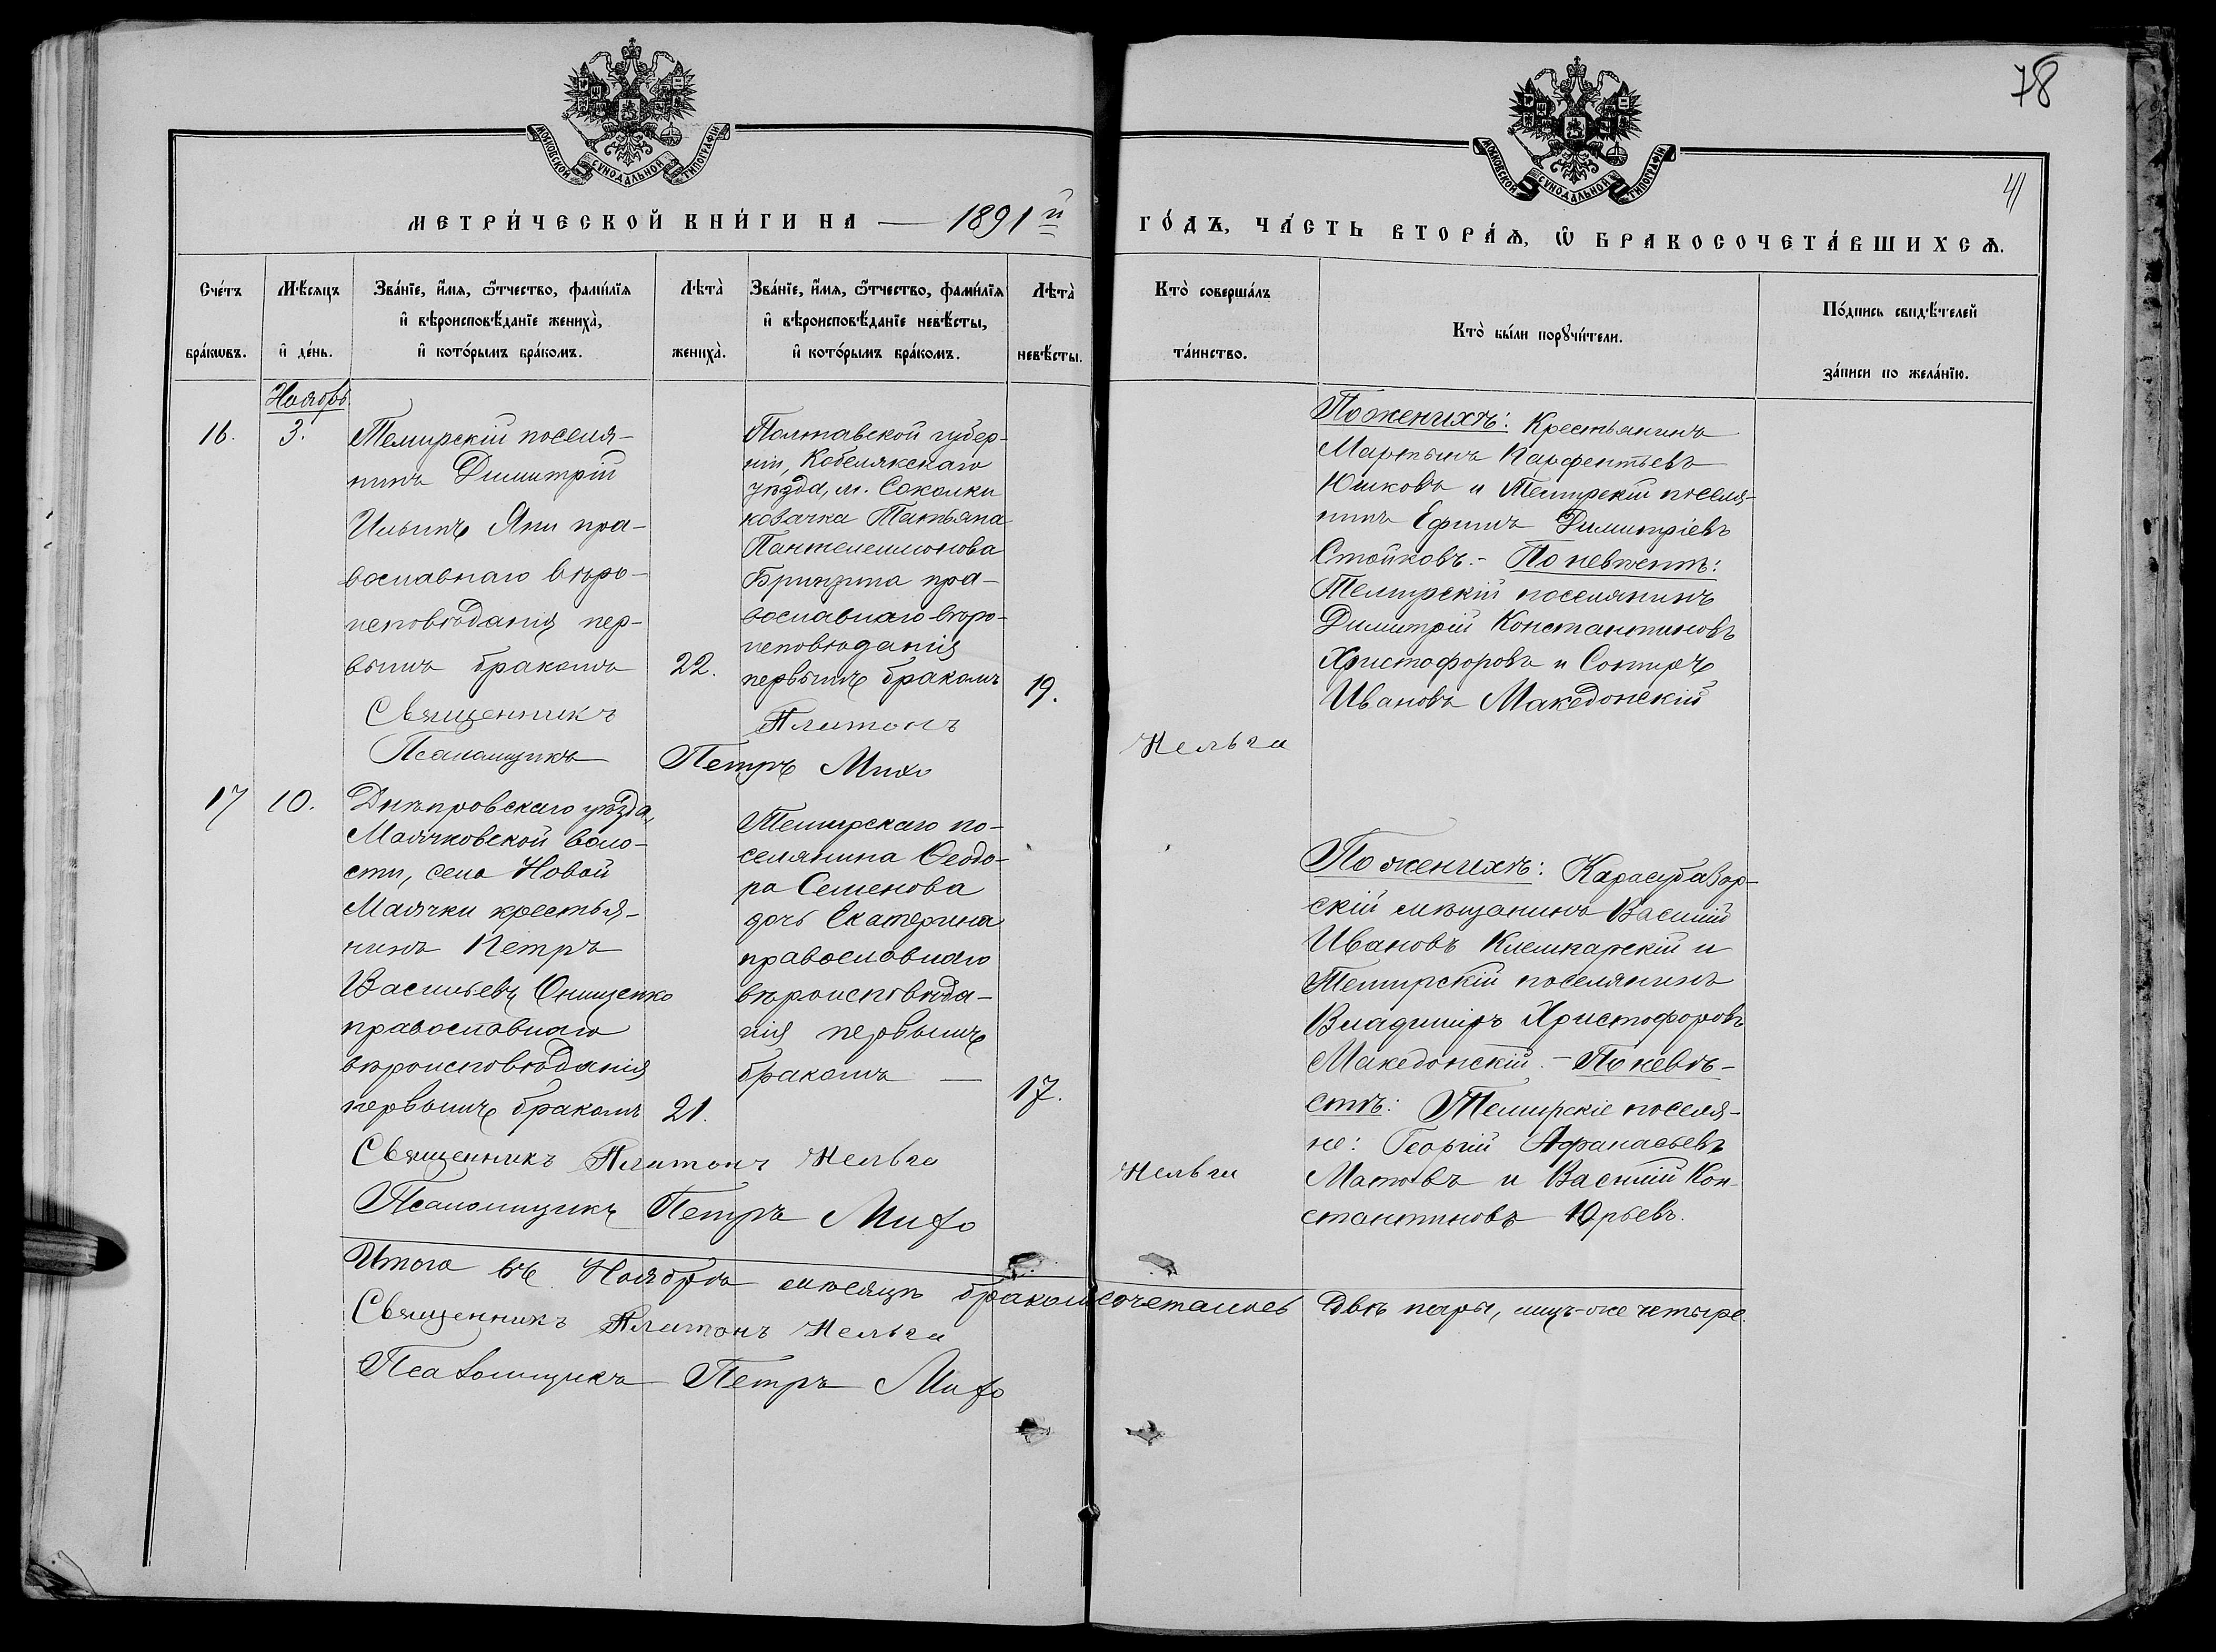 78
41
МОСКОВСКОЙ СѴНОДАЛЬНОЙ ТИПОГРАФІИ
МОСКОВСКОЙ СѴНОДАЛЬНОЙ ТИПОГРАФІИ
МЕТРИ́ЧЕСКОЙ КНИ́ГИ НА — 1891й
ГО́ДЪ, ЧА́СТЬ ВТОРА́Ѧ, Ѡ҆ БРАКОСОЧЕТА́ВШИХСѦ.
Сче́тъ
бра́кωвъ.
Мѣ́сяцъ
и҆ де́нь.
Зва́нїе, и҆́мѧ, ѻ҆́тчество, фами́лїѧ
и҆ вѣроисповѣ́данїе жениха̀,
и҆ кото́рымъ бра́комъ.
Лѣта̀
жениха̀.
Зва́нїе, и҆́мѧ, ѻ҆́тчество, фами́лїѧ
и҆ вѣроисповѣ́данїе невѣ́сты,
и҆ кото́рымъ бра́комъ.
Лѣта̀
невѣ́сты.
Кто̀ соверша́лъ
та́инство.
Кто̀ бы́ли порꙋчи́тели.
По́дпись свидѣ́телей
за́писи по жела́нїю.
Ноябрь
16.
3.
Темирскій поселя-
нинъ Димитрій
Ильинъ Яни пра-
вославнаго вѣро-
исповѣданія пер-
вымъ бракомъ
22.
Полтавской губер-
ніи, Кобелякскаго
уѣзда, м. Соколки
козачка Татьяна
Пантелеимонова
пра-
вославнаго вѣро-
исповѣданія
первымъ бракомъ
19.
По женихѣ: Крестьянинъ
Мартынъ Парфентьевъ
Юшковъ и Темирскій поселя-
нинъ Ефимъ Димитріевъ
Стойковъ. - По невѣстѣ:
Темирскій поселянинъ
Димитрій Константиновъ
Христофоровъ и Сотиръ
Ивановъ Македонскій
Священникъ Платонъ
Нельга
Псаломщикъ Петръ Михо
17
10.
Днѣпровскаго уѣзда,
Маячковской воло-
сти, села Новой
Маячки крестья-
нинъ Петръ
Васильевъ Онищенко
православнаго
вѣроисповѣданія
первымъ бракомъ
21.
Темирскаго по-
селянина Ѳеодо-
ра Семенова
дочь Екатерина
православнаго
вѣроисповѣда-
нія первымъ
бракомъ —
17.
По женихѣ: Карасубазар-
скій мѣщанинъ Василій
Ивановъ и
Темирскій поселянинъ
Владиміръ Христофоровъ
Македонскій. - По невѣ-
стѣ: Темирскіе поселя-
не: Георгій Афанасьевъ
и Василій Кон-
стантиновъ Юрьевъ.
Священникъ Платонъ Нельга
Нельга
Псаломщикъ Петръ Михо
Итого въ Ноябрѣ мѣсяцѣ бракомъ сочеталось двѣ пары, лицъ-же четыре.
Священникъ Платонъ Нельга
Псаломщикъ Петръ Михо